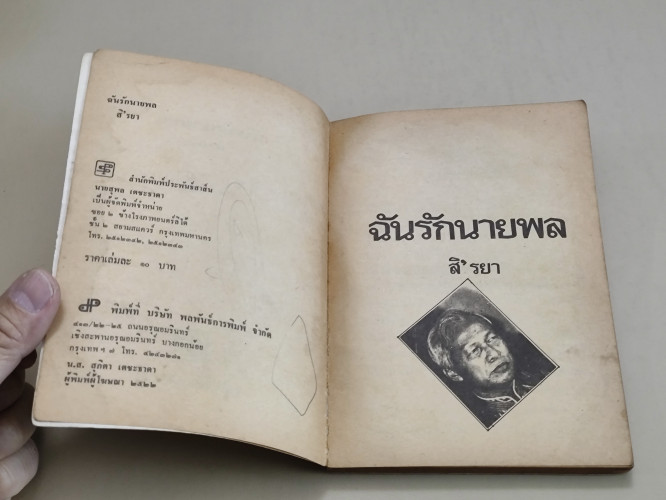 ฉันรักนายพล
สิ'รยา
สำนักพิมพ์ประพันธ์สาส์น
นายสุพล เตชะธาดา
เป็นผู้จัดพิมพ์จำหน่าย
ซอย ๒ ข้างโรงภาพยนตร์ลิโด้
ชั้น ๒ สยามสแควร์ กรุงเทพมหานคร
โทร. ๒๕๑๒๓๔๒, ๒๕๑๒๓๔๓
ราคาเล่มละ ๑๐ บาท
พิมพ์ที่ บริษัท พลพันธ์การพิมพ์ จำกัด
๔๑๓/๒๒-๒๕ ถนนอรุณอมรินทร์
เชิงสะพานอรุณอมรินทร์ บางกอกน้อย
กรุงเทพ ฯ ๗ โทร.
น.ส. สุภิตา เตชะธาดา
ผู้พิมพ์ผู้โฆษณา ๒๕๒๒
ฉันรักนายพล
สิ'รยา